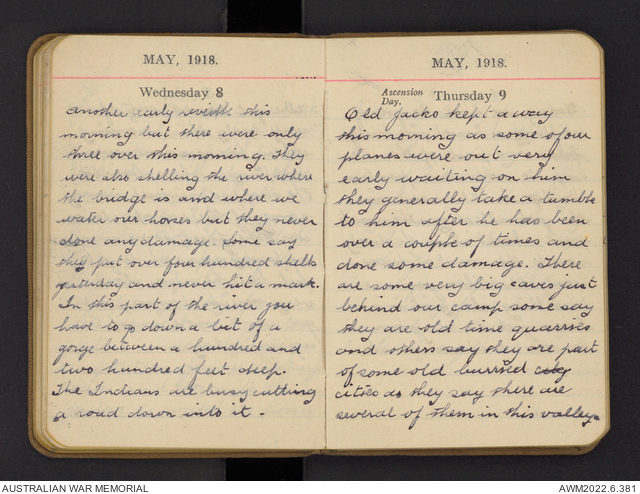 MAY, 1918.
Wednesday 8
another early reveille this
morning but there were only
three over this morning. They
were also shelling the river where
the bridge is and where we
water our horses but they never
done any damage. Some say
they put over four hundred shells
yesterday and never hit a mark.
In this part of the river you
have to go down a bit of a
gorge between a hundred and
two hundred feet deep.
The Indians are busy cutting
a road down into it -
MAY, 1918.
Ascension Day. Thursday 9
Old Jacko kept away
this morning as some of our
planes were out very
early waiting on him
they generally take a tumble
to him after he has been
over a couple of times and
done some damage. There
are some very big caves just
behind our camp some say
they are old time quarries
and others say they are part
of some old burried
cities as they say there are
several of them in this valley.
AUSTRALIAN WAR MEMORIAL
AWM2022.6.381